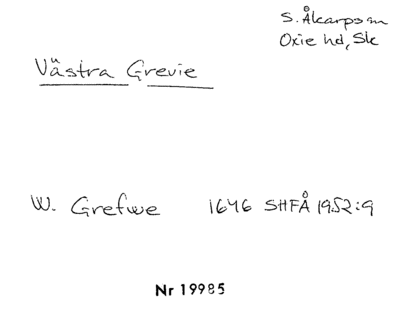 S. Åkarps sn
Oxie hd, Sk
Västra Grevie
W. Grefwe 1646 SHFÅ 1952:9
Nr 19985